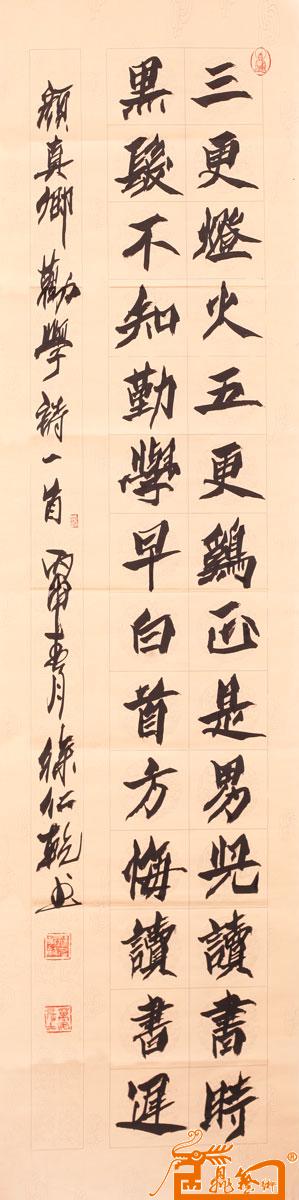 三更燈火五更鷄正是男兒讀書時
黒髮不知勤學早白首方悔讀書遲
顔真卿勸學詩一首 丙申青月徐仁乾書